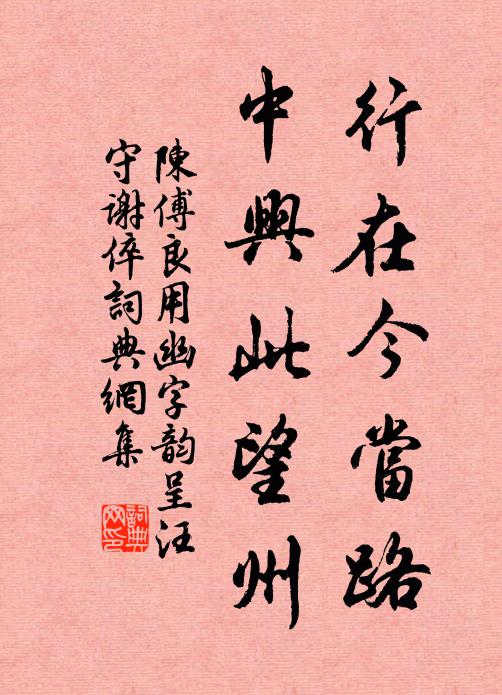 行在今當路
中興此望州
陳傅良用幽字韵呈汪
守謝倅詞典網集
詞典
网印